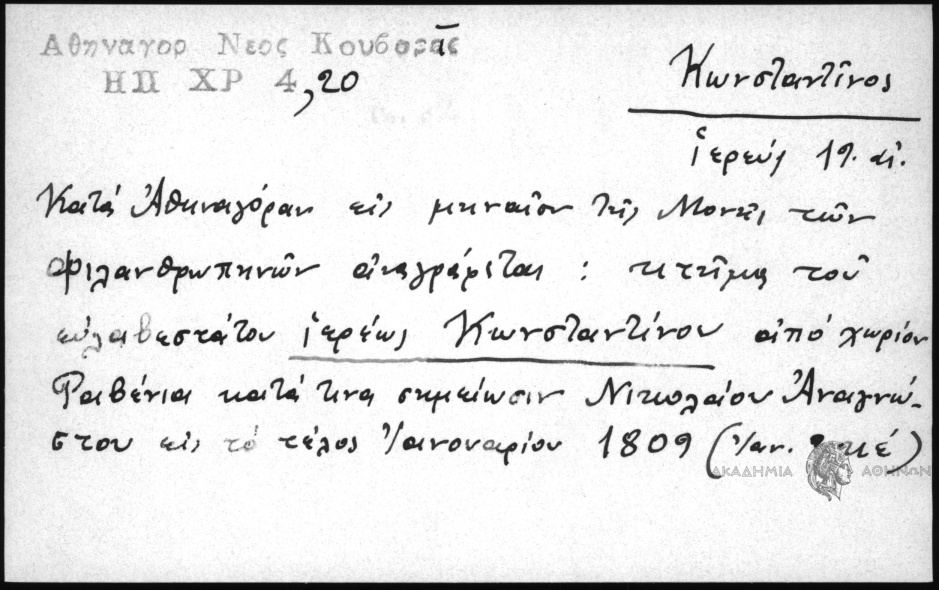 Αθηναγορ Νεος Κουβαρᾶς
ΗΠ ΧΡ 4,20
Κωνσταντῖνος
ἱερεύς 19. αἰ.
Κατά Ἀθηναγόραν εἰς μηναῖον τῆς Μονῆς τῶν
Φιλανθρωπηνῶν ἀναγράφεται : κτῆμα τοῦ
εὐλαβεστάτου ἱερέως Κωνσταντίνου ἀπό χωρίον
Ραβένια κατά τινα σημείωσιν Νικολάου Ἀναγνώ-
στου εἰς τό τέλος Ἰανουαρίου 1809 (Ἰαν. κέ)
ΑΚΑΔΗΜΙΑ ΑΘΗΝΩΝ